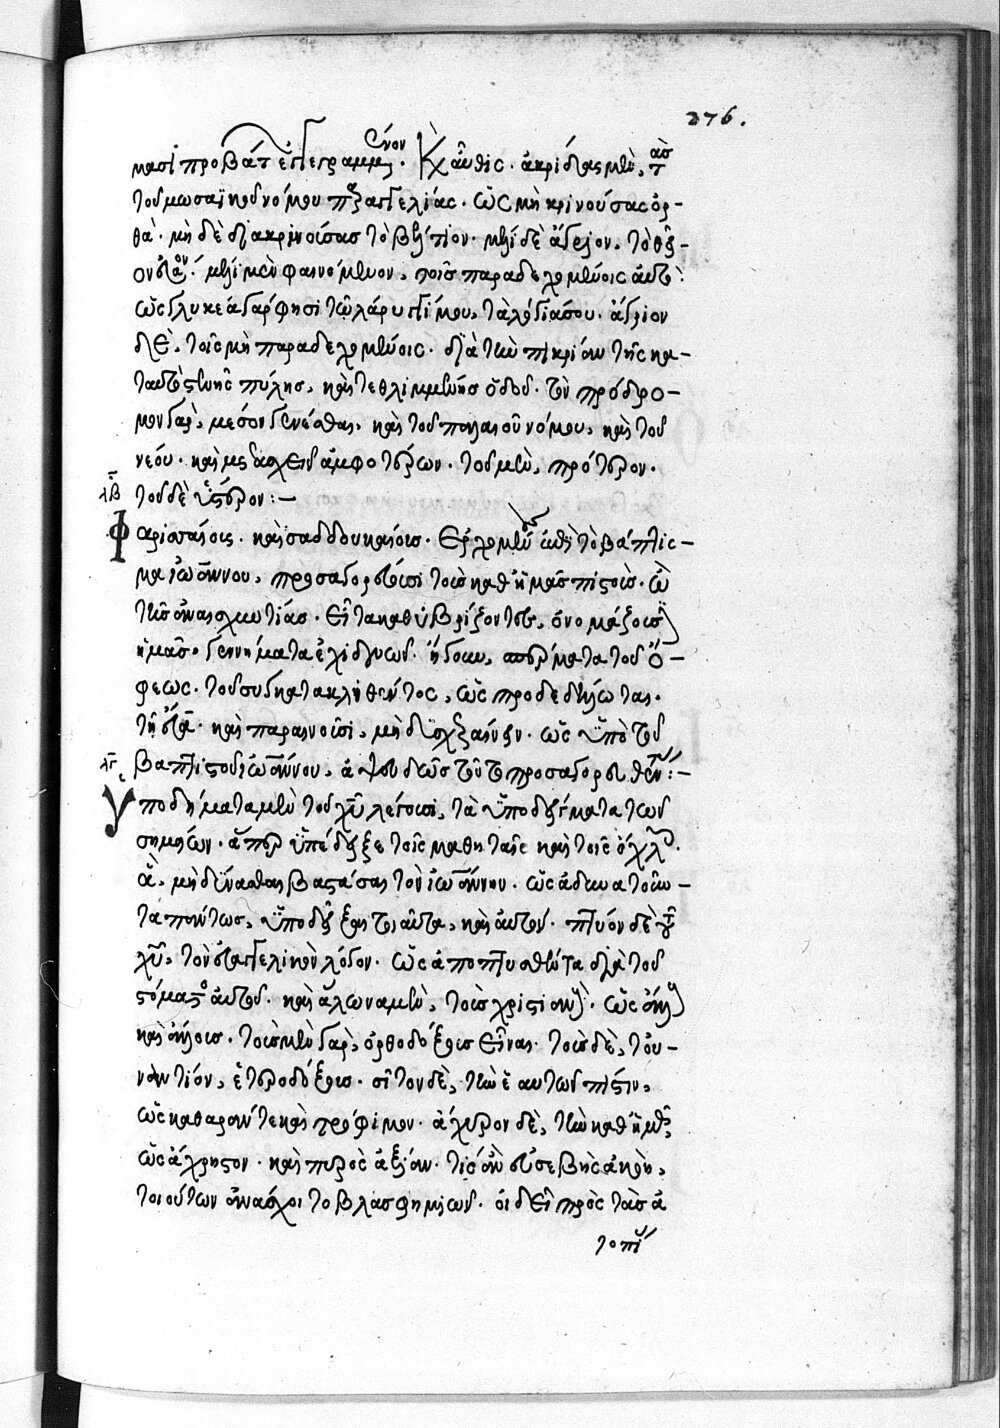 276.
μασι προβάτ ἐγγεγραμμένον. Καὶ αὖθις. ἀκρίδας μὲν, τὰς
τοῦ μωσαϊκοῦ νόμου παραγγελίας. ὡς μὴ κρινούσας ὀρ-
θὰ. μὴ δὲ διακρινούσας τὸ βέλτιον. μέλι δὲ ἄγριον, τὸ θεῖ-
ον εὐαγγέλιον. μέλι μὲν φαινόμενον, τοῖς παραδεχομένοις αὐτό.
ὡς γλυκέα γάρ φησι τῷ λάρυγγί μου, τὰ λόγιά σου. ἄγριον
δὲ, τοῖς μὴ παραδεχομένοις. διὰ τὴν πικρίαν τῆς κα-
τ αὐτὸ στενῆς πύλης, καὶ τεθλιμμένης ὁδοῦ. τὸν πρόδρο-
μον γὰρ, μέσον γενέσθαι, καὶ τοῦ παλαιοῦ νόμου, καὶ τοῦ
νέου. καὶ μετασχεῖν ἀμφοτέρων. τοῦ μὲν, πρότερον.
λβ τοῦ δὲ ὕστερον :-
Φαρισαίοις. καὶ σαδδουκαίοις. ἐρχομένοις ἐπὶ τὸ βάπτισ-
μα ἰωάννου, προσαγορεύουσι τοῖς καθ ἡμᾶς πιστοῖς. ὢ
τῆς ἀναισχυντίας. εἶτα καθυβρίζοντες, ὀνομάζουσιν
ἡμᾶς. γεννήματα ἐχιδνῶν. ἤγουν, σπέρματα τοῦ ὄ-
φεως. τοῦ συγκατακληθέντος, ὡς προδεδήλωται.
τῇ εὔα. καὶ παραινοῦσι, μὴ διχεραίνειν. ὡς ὑπὸ τοῦ
λγ βαπτιστοῦ ἰωάννου, ἀψευδῶς τοῦτο προσαγορευθέν :-
Ὑποδήματα μὲν τοῦ χυ λέγουσι, τὰ ὑποδείγματα τῶν
σημείων. ἅπερ ὑπέδειξε τοῖς μαθηταῖς καὶ τοῖς ὄχλοις.
ἃ, μὴ δύνασθαι βαστάσαι τὸν ἰωάννην. ὡς ἀδυνατοῦν-
τα πάντως, ὑποδεῖξαι τοιαῦτα, καὶ αὐτόν. πτύον δὲ τοῦ
χυ, τὸν εὐαγγελικὸν λόγον. ὡς ἀποπτυσθέντα διὰ τοῦ
στόματος αὐτοῦ. καὶ ἅλωνα μὲν, τοὺς χριστιανούς. ὡς
καὶ τοὺς μὲν γὰρ, ὀρθοδόξους εἶναι. τοὺς δὲ, τοὐ-
ναντίον, ἑτεροδόξους. σῖτον δὲ, τὴν ἑαυτῶν πίστιν,
ὡς καθαρόν τε καὶ τρόφιμον. ἄχυρον δὲ, τὴν καθ ἡμᾶς,
ὡς ἄχρηστον. καὶ πυρὸς ἀξίαν. τίς ἂν εὐσεβὴς ἀκοὴ,
τοιούτων ἀνάσχοιτο βλασφημιῶν. οἱ δ εἰ πρὸς τὰς ἀ
τοπί